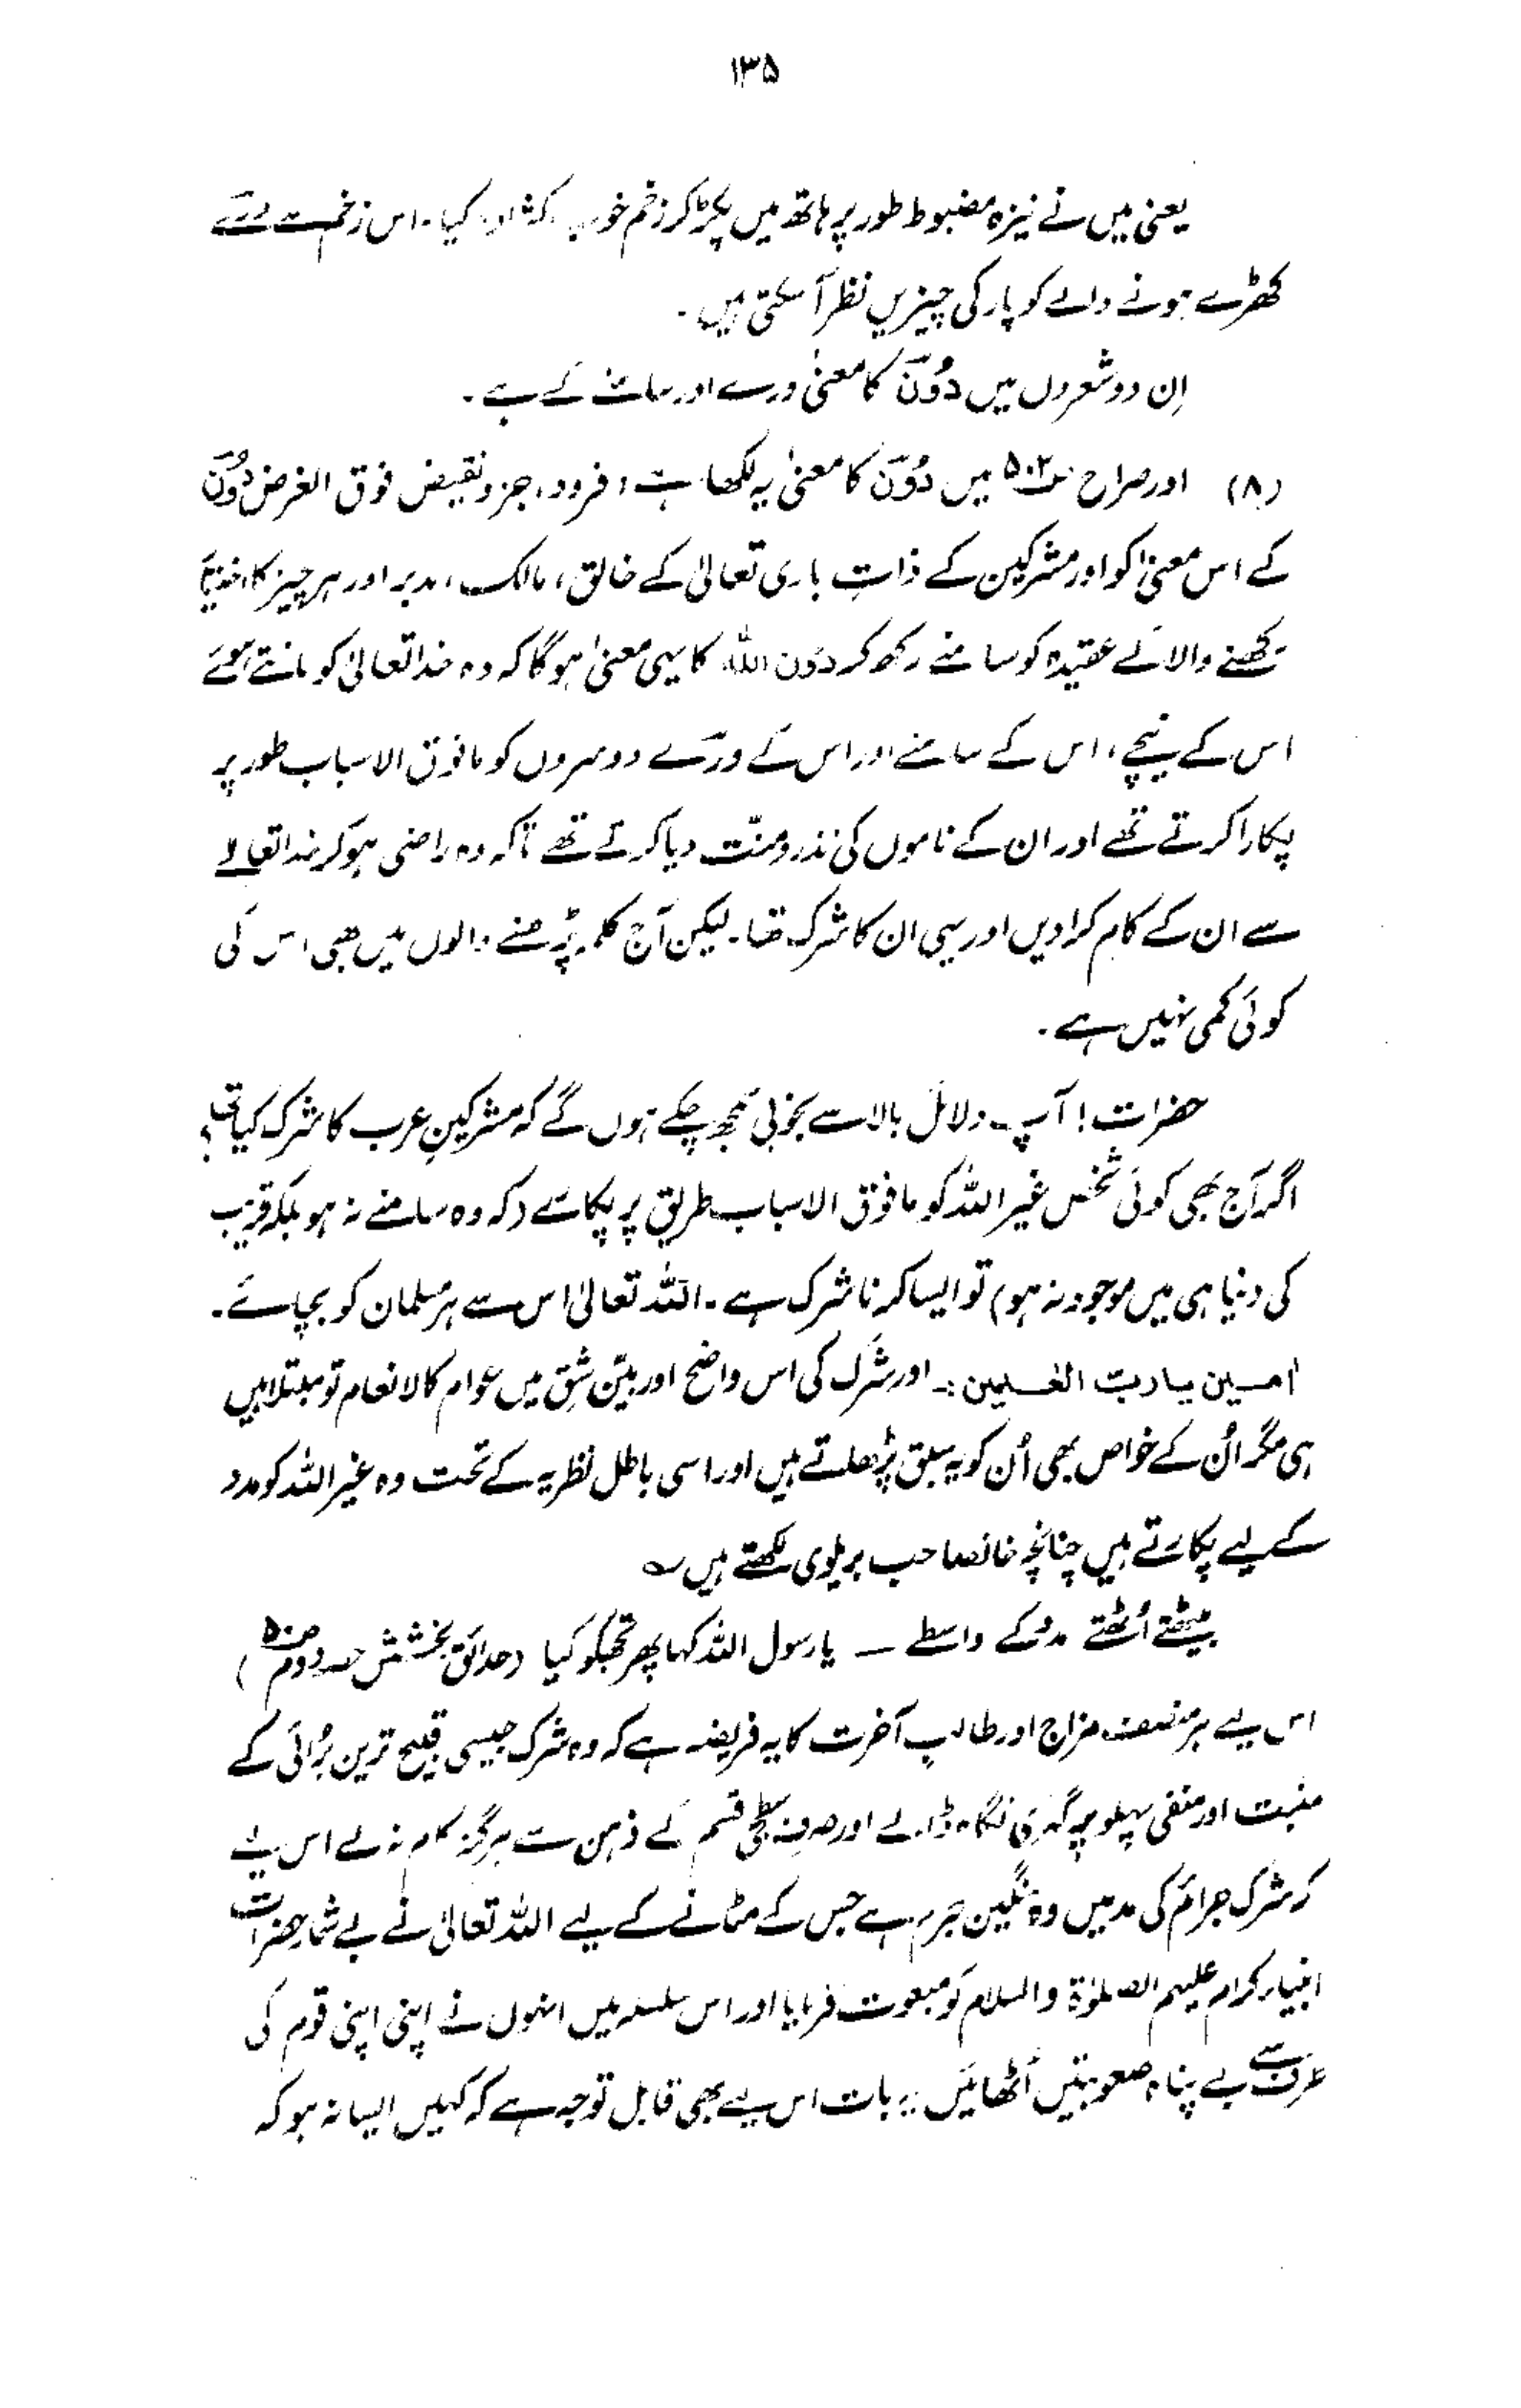 ۱۳۵
یعنی میں نے نیزہ مضبوط طور پر ہاتھ میں پکڑ کر زخم خوب کشادہ کیا۔ اس زخم سے ورے
کھڑے ہونے والے کو پار کی چیزیں نظر آ سکتی ہیں۔
اِن دو شعروں میں دُوْنَ کا معنیٰ ورے اور سامنے کے ہے۔
(۸) اور صراح ص۵۰۲ میں دُوْنَ کا معنیٰ یہ لکھا ہے: فرود، جز و نقیض فوق الغرض دُوْنَ
کے اس معنیٰ کو اور مشرکین کے ذاتِ باری تعالیٰ کے خالق، مالک، مدبر اور ہر چیز کا اختیار
رکھنے والا کے عقیدہ کو سامنے رکھ کر دون اللہ کا یہی معنیٰ ہو گا کہ وہ خدا تعالیٰ کو مانتے ہوئے
اس کے نیچے، اس کے سامنے اور اس کے ورے دوسروں کو مافوق الاسباب طور پر
پکارا کرتے تھے اور ان کے ناموں کی نذر و منّت دیا کرتے تھے تاکہ وہ راضی ہو کر خدا تعالےٰ
سے ان کے کام کرا دیں اور یہی ان کا شرک تھا۔ لیکن آج کلمہ پڑھنے والوں میں بھی اس کی
کوئی کمی نہیں ہے۔
حضرات! آپ دلائل بالا سے بخوبی سمجھ چکے ہوں گے کہ مشرکینِ عرب کا شرک کیا تھا؟
اگر آج بھی کوئی شخص غیر اللہ کو مافوق الاسباب طریق پر پکارے (کہ وہ سامنے نہ ہو بلکہ قریب
کی دنیا ہی میں موجود نہ ہو) تو ایسا کرنا شرک ہے۔ اللہ تعالیٰ اس سے ہر مسلمان کو بچائے۔
اٰمین یا ربّ العٰلمین :۔ اور شرک کی اس واضح اور بیّن شِق میں عوام کالانعام تو مبتلا ہیں
ہی مگر اُن کے خواص بھی اُن کو یہ سبق پڑھاتے ہیں اور اسی باطل نظریہ کے تحت وہ غیر اللہ کو مدد
کے لیے پکارتے ہیں چنانچہ خانصاحب بریلوی لکھتے ہیں ؎
بیٹھتے اُٹھتے مدد کے واسطے ــ یا رسول اللہ کہا پھر تجھکو کیا (حدائق بخشش حصہ دوم ص۵۰)
اس لیے ہر منصف مزاج اور طالبِ آخرت کا یہ فریضہ ہے کہ وہ شرک جیسی قبیح ترین بُرائی کے
مثبت اور منفی پہلو پر گہری نگاہ ڈالے اور صرف سطحی قسم کے ذہن سے ہرگز کام نہ لے اس لیے
کہ شرک جرائم کی مد میں وہ سنگین جرم ہے جس کے مٹانے کے لیے اللہ تعالیٰ نے بے شمار حضرات
انبیاء کرام علیہم الصلوٰۃ والسلام کو مبعوث فرمایا اور اس سلسلہ میں انہوں نے اپنی اپنی قوم کی
طرف سے بے پناہ صعوبتیں اُٹھائیں یہ بات اس لیے بھی قابل توجہ ہے کہ کہیں ایسا نہ ہو کہ